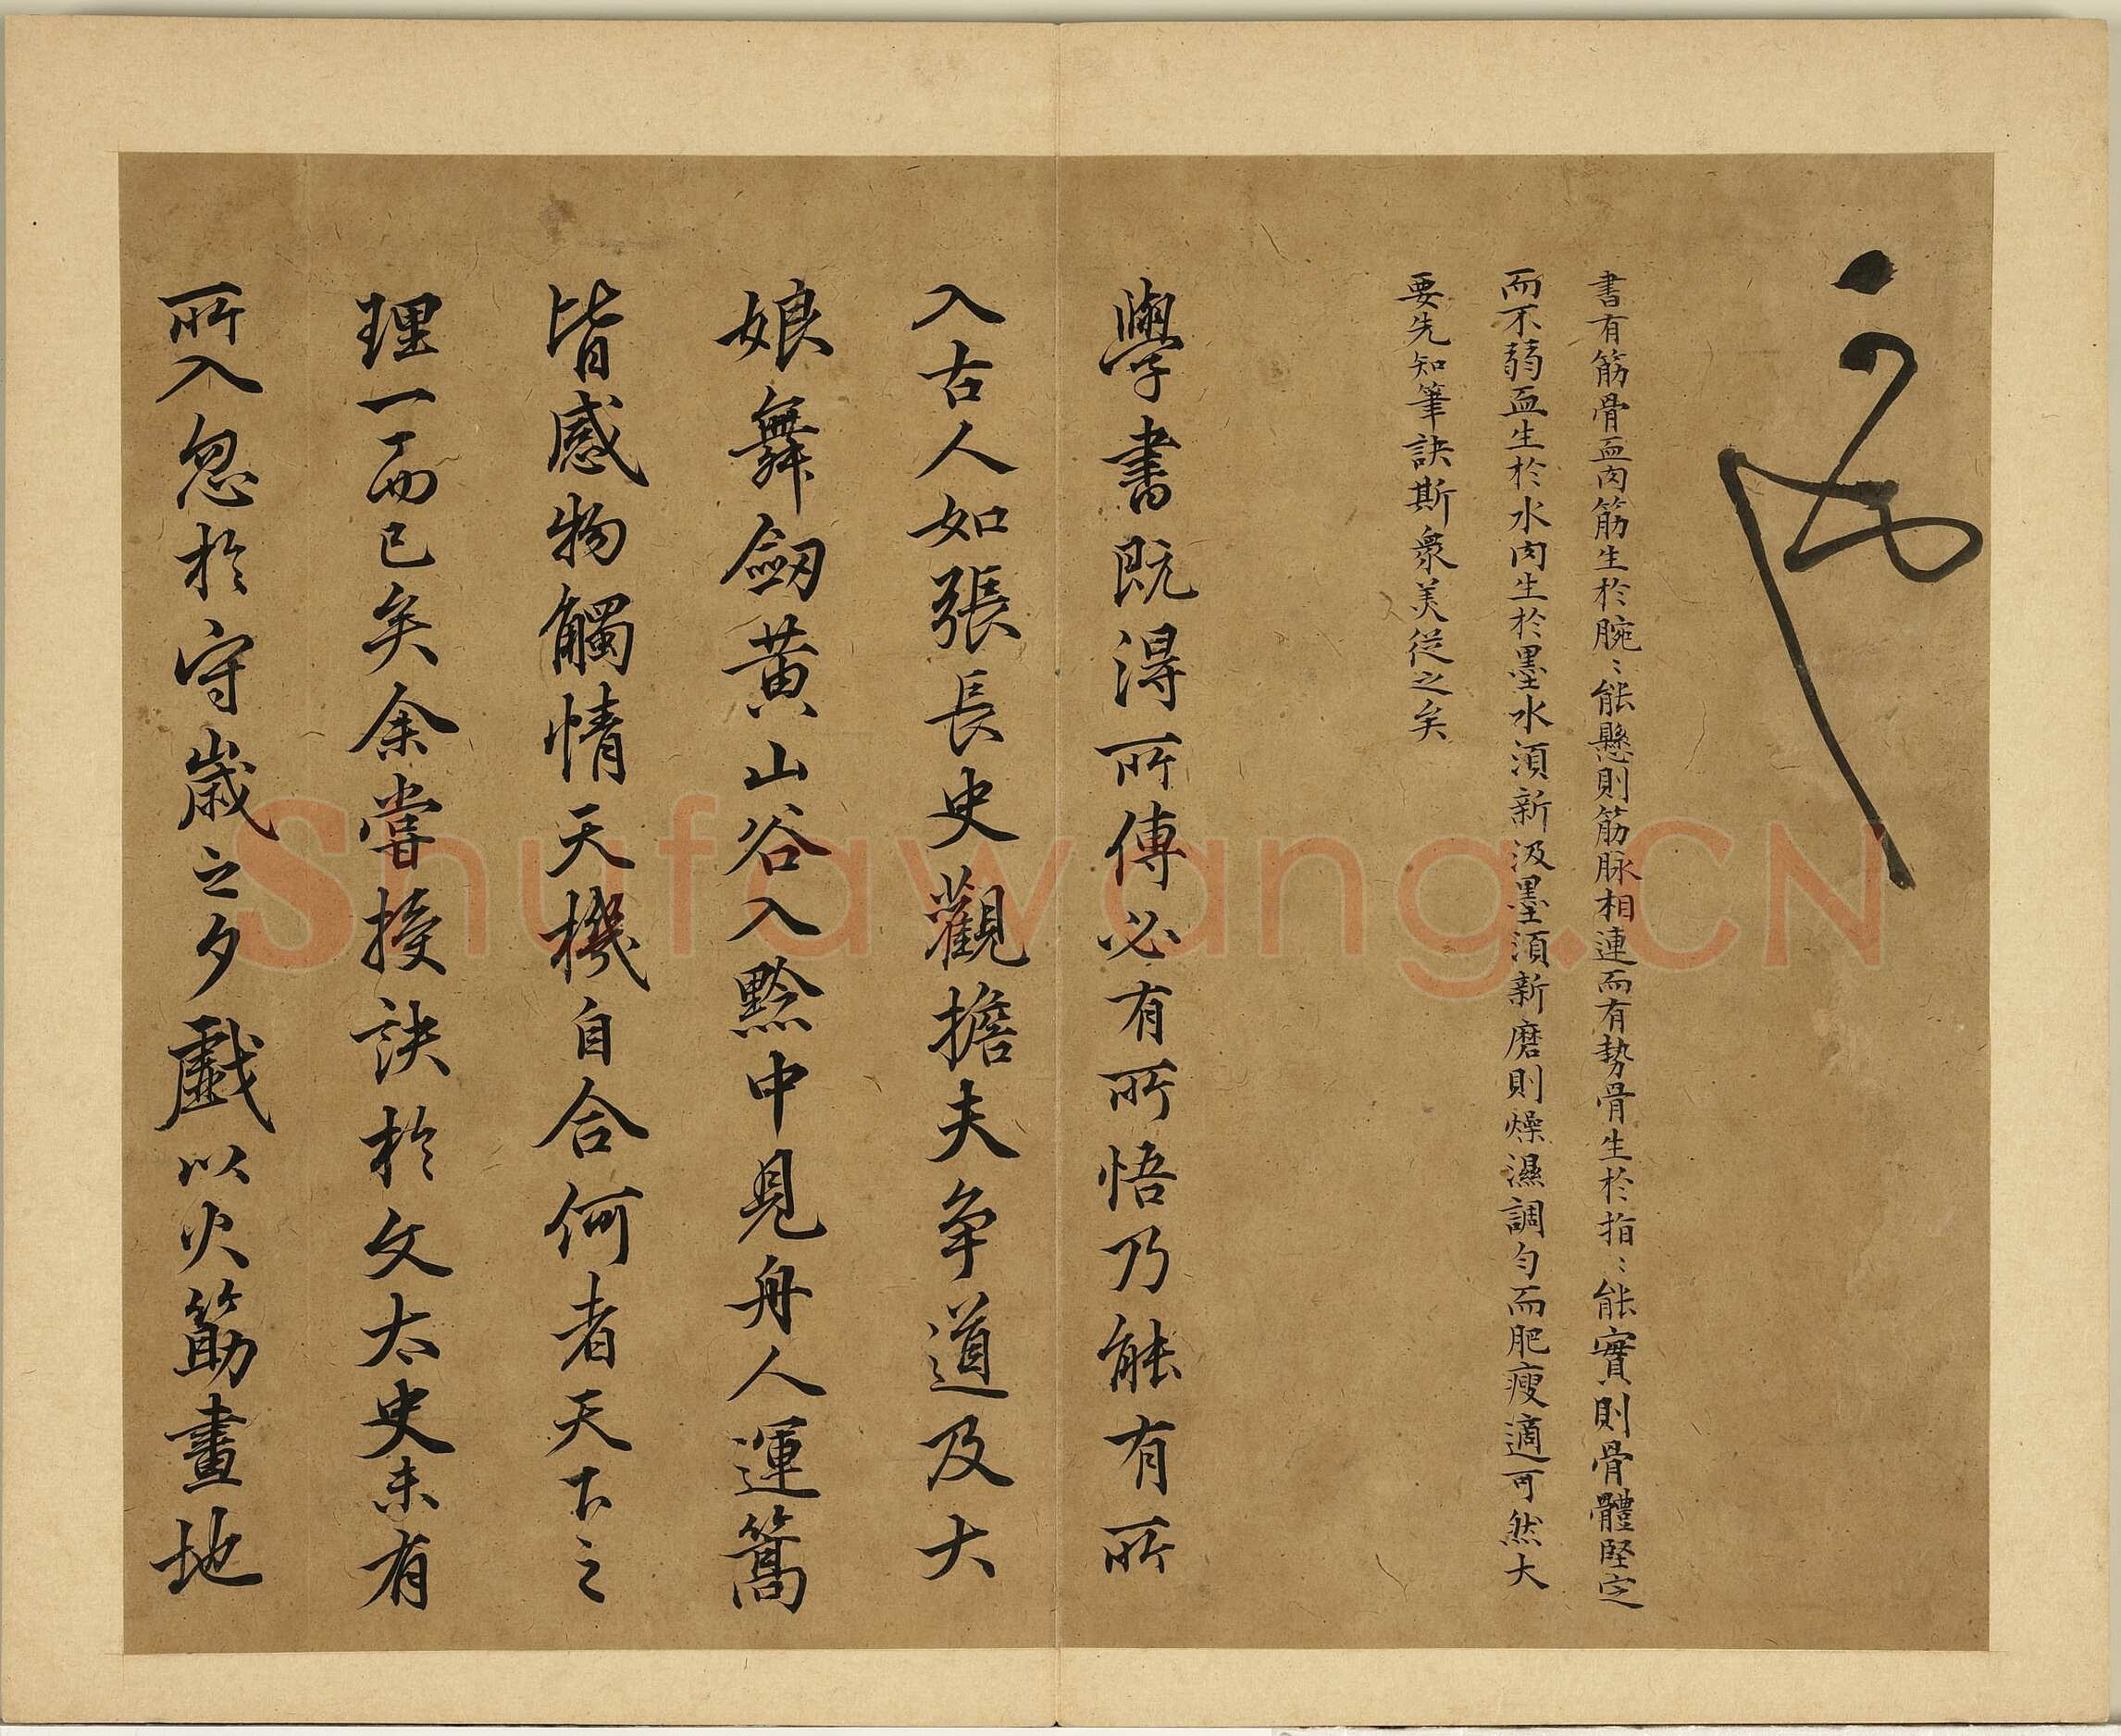 書有筋骨血肉筋生於腕〻能懸則筋脉相連而有勢骨生於指〻能實則骨體堅定
而不弱血生於水肉生於墨水須新汲墨須新磨則燥濕調勻而肥瘦適可然大
要先知筆訣斯衆美從之矣
學書既得所傳必有所悟乃能有所
入古人如張長史觀擔夫争道及大
娘舞劒黄山谷入黔中見舟人運篙
皆感物觸情天機自合何者天下之
理一而已矣余嘗授訣於文太史未有
所入忽於守歲之夕戲以火筯畫地
Shufawang.CN